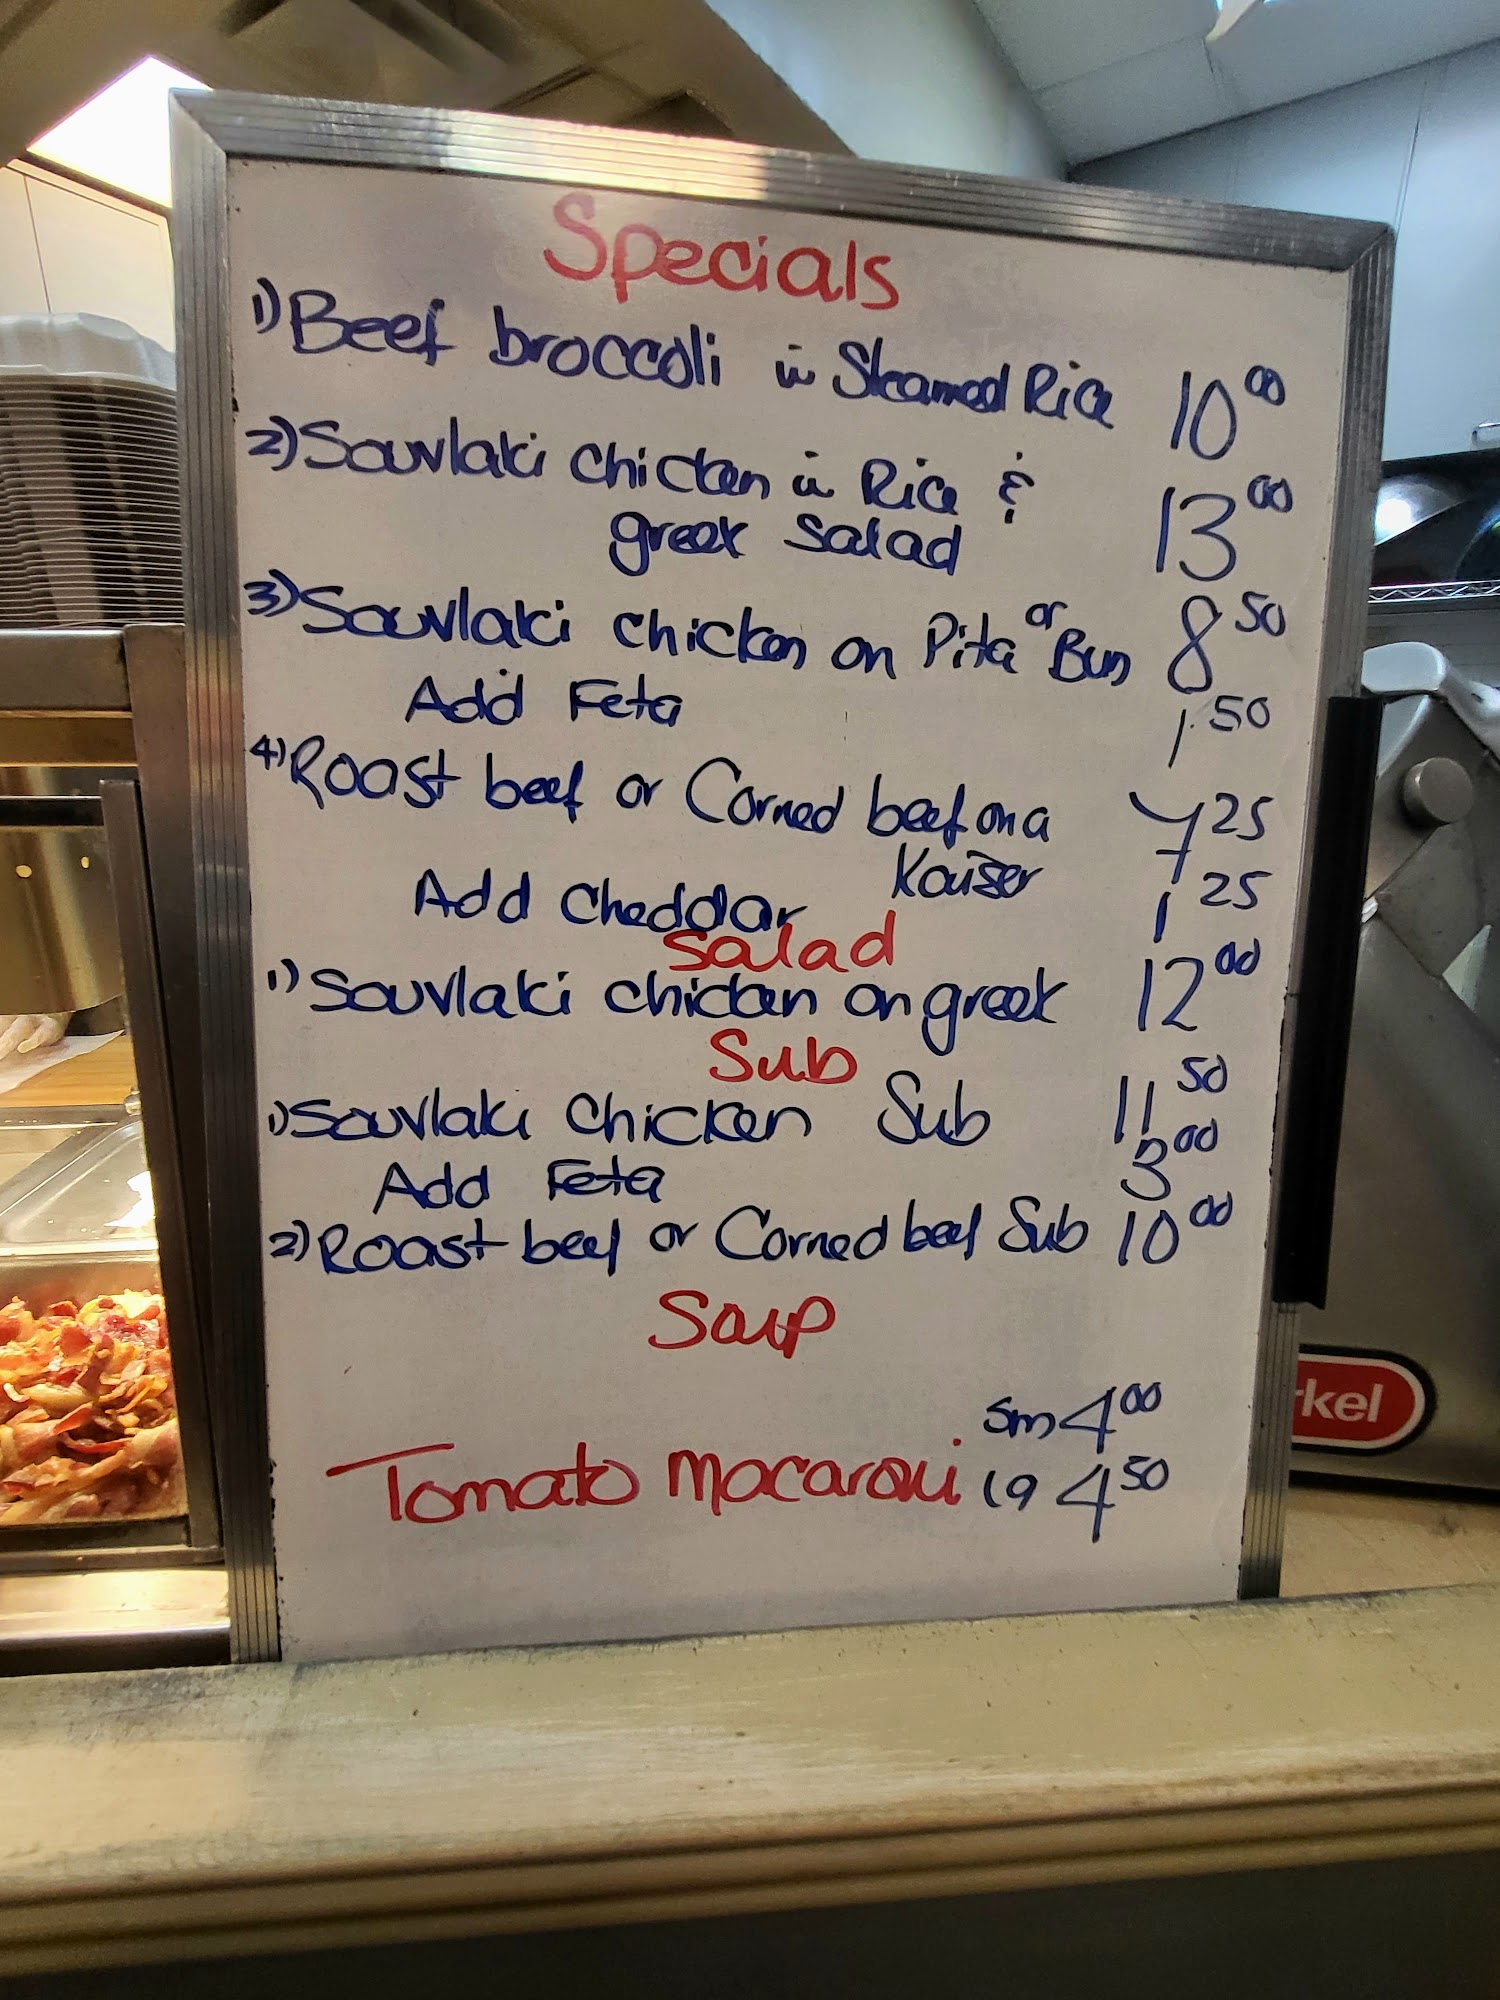 Specials
1) Beef broccoli w Steamed Rice 10 00
2) Souvlaki chicken w Rice & 13 00
greek salad
3) Souvlaki chicken on Pita or Bun 8 50
Add Feta 1.50
4) Roast beef or Corned beef on a 7 25
Kaiser
Add Cheddar 1 25
Salad
1) Souvlaki chicken on greek 12 00
Sub
1) Souvlaki Chicken Sub 11 50
Add Feta 3 00
2) Roast beef or Corned beef Sub 10 00
Soup
sm 4 00
Tomato macaroni lg 4 50
rkel